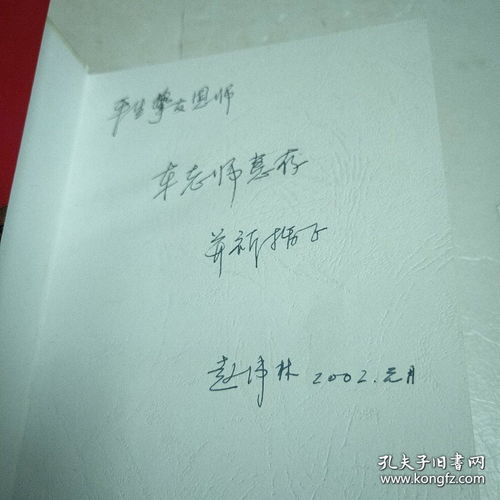 平生挚友恩师
车志师惠存
并祈指正
赵伟林 2002.元月
孔夫子旧书网
www.kongfz.com